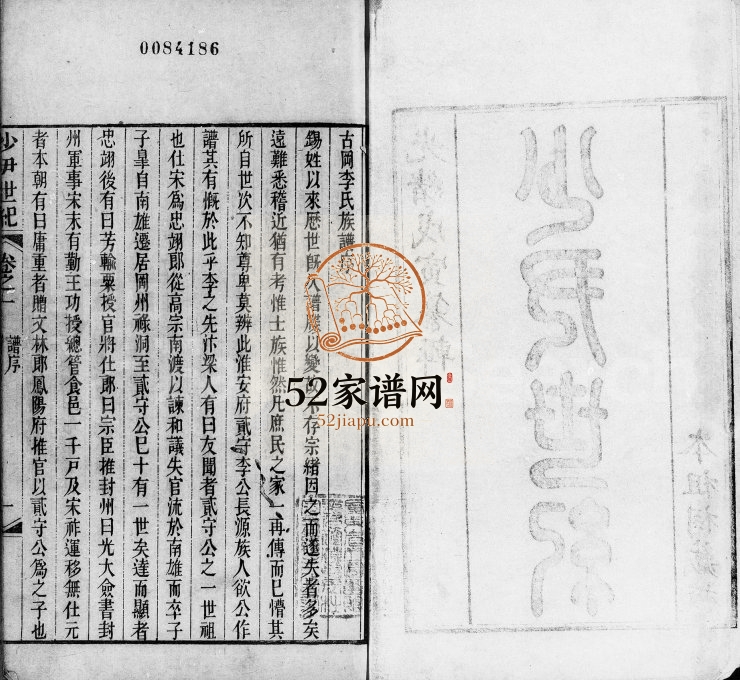 0084186
古岡李氏族譜序
錫姓以來歷世旣久譜牒以變不存宗緒因之而遂失者多矣
遠難悉稽近猶有考惟士族惟然凡庶民之家一再傳而已懵其
所自世次不知尊卑莫辨此淮安府貳守李公長源族人欲公作
譜其有慨於此乎李之先汴梁人有曰友聞者貳守公之一世祖
也仕宋爲忠翊郎從高宗南渡以諫和議失官流於南雄而卒子
子皐自南雄遷居岡州祿洞至貳守公巳十有一世矣達而顯者
忠翊後有曰芳輸粟授官將仕郎曰宗臣推封州曰光大僉書封
州軍事宋末有勤王功授總管食邑一千戸及宋祚運移無仕元
者本朝有曰庸重者贈文林郎鳳陽府推官以貳守公爲之子也
少尹世紀 卷之一 譜序 一
52家谱网
52jiapu.com
少尹世紀
光緖戊寅
本祖祠藏